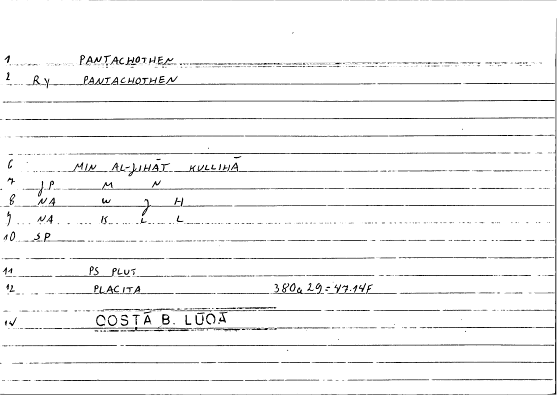 1 PANTACHOTHEN
2 Ry PANTACHOTHEN
6 MIN AL-JIHĀT KULLIHĀ
7 JP M N
8 NA W J H
9 NA K L L
10 SP
11 PS PLUT
12 PLACITA 380a29=47.14F
14 COSTĀ B. LŪQĀ